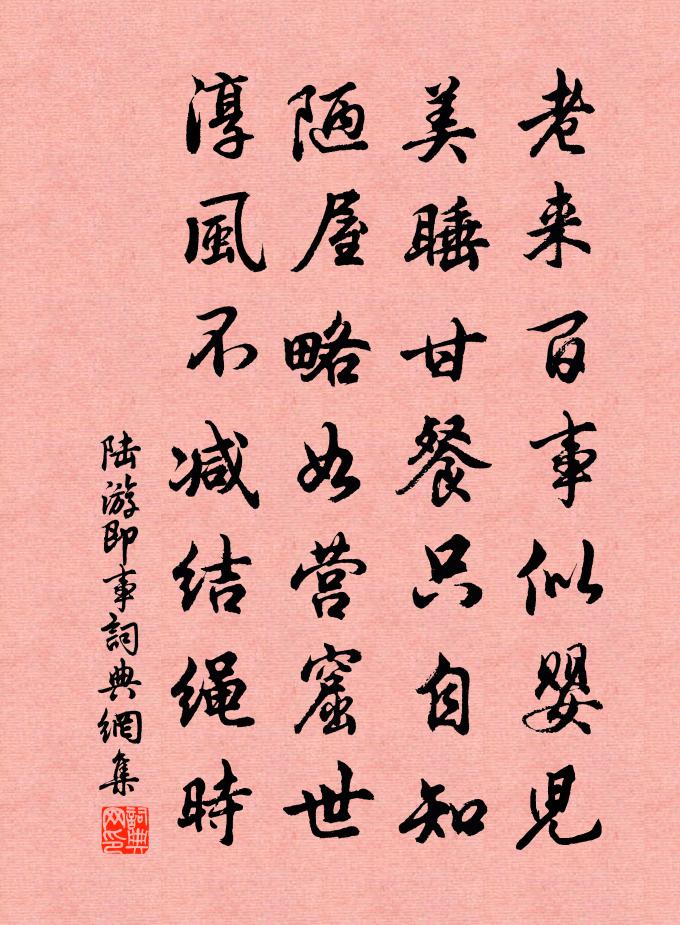 老来百事似嬰児
美睡甘餐只自知
陋屋略如营窟世
淳風不减结绳時
陆游即事詞典網集
詞典网印